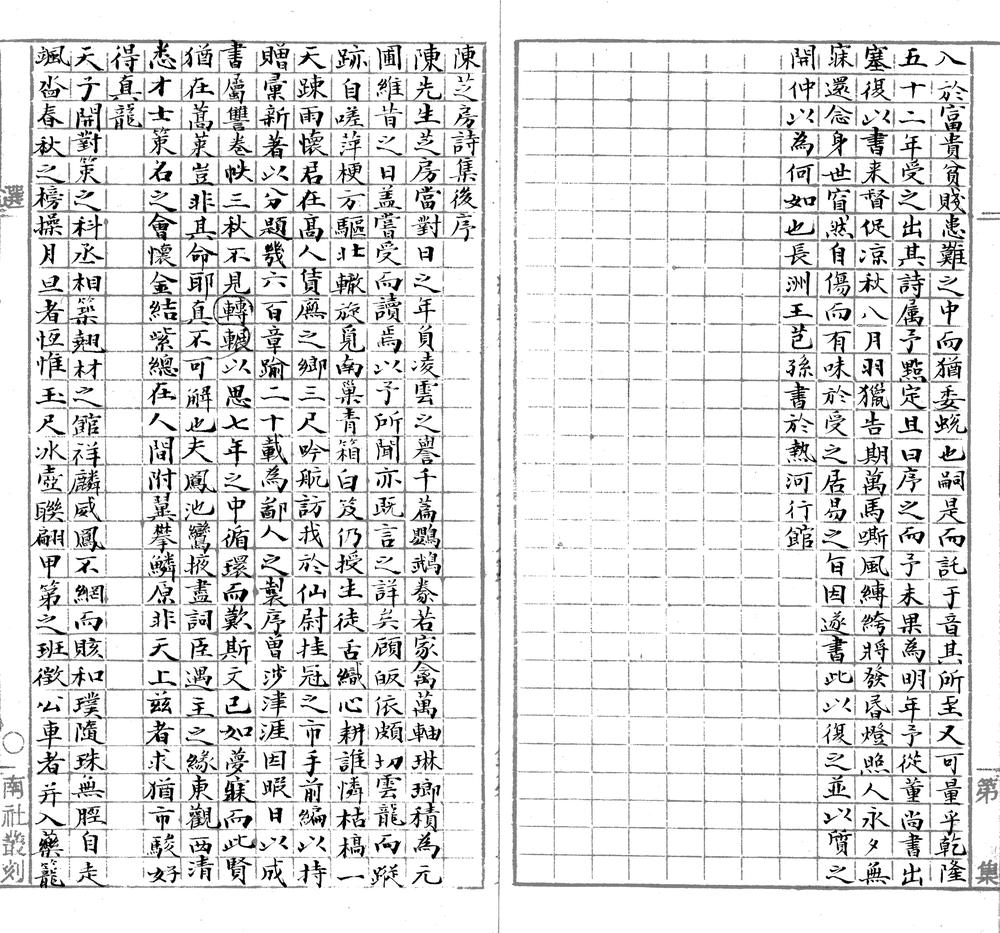 入於富貴貧賤患難之中而猶委蛻也嗣是而託于音其所至又可量乎乾隆
五十二年受之出其詩属予㸃定且曰序之而予未果為明年予從董尚書出
塞復以書来督促凉秋八月羽獵告期萬馬嘶風縛絝將發昏燈照人永夕無
寐還念身世窅然自傷而有味於受之居易之㫖因遂書此以復之並以質之
開仲以為何如也長洲王芑孫書於熱河行館
第
集
陳芝房詩集後序
陳先生芝房當對日之年負凌雲之譽千篇鸚鵡豢若家禽萬軸琳瑯積為元
圃維昔之日盖嘗受而讀焉以予所聞亦既言之詳矣顧皈依頗切雲龍而蹤
跡自嗟萍梗方驅北轍旋覓南巢青箱白笈仍授生徒古織心耕誰憐枯槁一
天踈雨懷君在高人賃廡之鄉三尺吟航訪我於仙尉挂冠之市手前編以持
贈彙新著以分題幾六百章踰二十載為鄙人之製序曽涉津涯因暇日以成
書屬讐卷帙三秋不見轉轆以思七年之中循環而歎斯文已如夢寐而此賢
猶在蒿萊豈非其命耶真不可解也夫鳳池鸞掖盡詞臣遇主之緣東觀西清
悉才士策名之會懷金結紫總在人間附翼攀鱗原非天上兹者求猶市駿好
得真龍
天子開對策之科丞相築翹材之館祥麟威鳳不網而賅和璞隨珠無脛自走
颯沓春秋之榜操月旦者恆惟玉尺冰壺聯翩甲第之班徵公車者并入藥籠
選
〇
南社叢刻